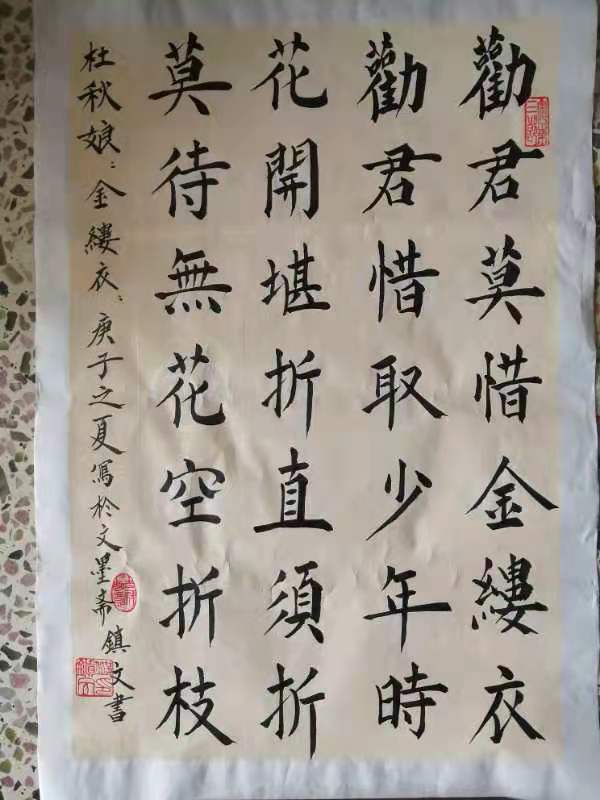 勸君莫惜金縷衣
勸君惜取少年時
花開堪折直須折
莫待無花空折枝
杜秋娘：金縷衣：庚子之夏寫於文墨斋 鎮文書